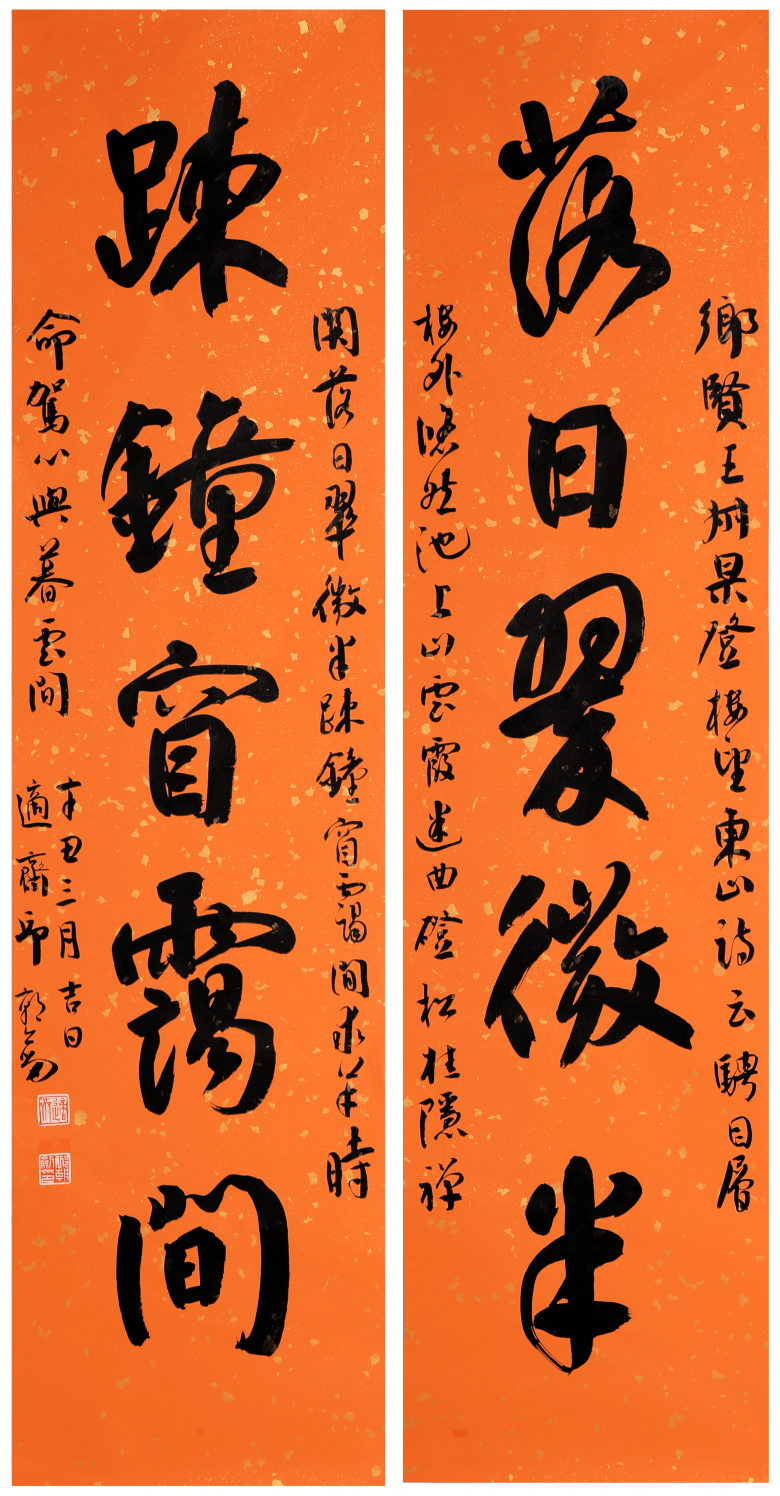 落日翠微半
鄉賢王叔杲登樓望東山詩云騁目層
樓外然池上山雲霞迷曲磴松桂隱禪
疎鐘窅靄間
關落日翠微半疎鐘窅靄間求羊時
命駕心與暮雲間
辛丑三月吉日
適齋郭